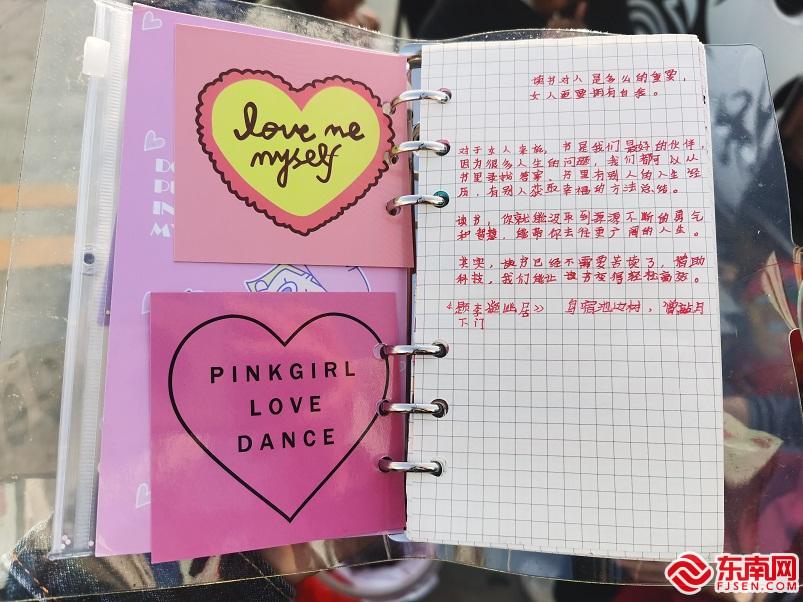 love me
myself
PINKGIRL
LOVE
DANCE
读书对人是多么的重要，
女人更要拥有自我。
对于女人来说，书是我们最好的伙伴，
因为很多人生的问题，我们都可以从
书里寻找答案。书里有别人的人生经
历，有别人获取幸福的方法总结。
读书，你就能汲取到源源不断的勇气
和智慧，能带你去往更广阔的人生。
其实，读书已经不需要苦读了，借助
科技，我们能让读书变得轻松高效。
《题李凝幽居》 鸟宿池边树，僧敲月
下门
东南网
FJSEN.COM